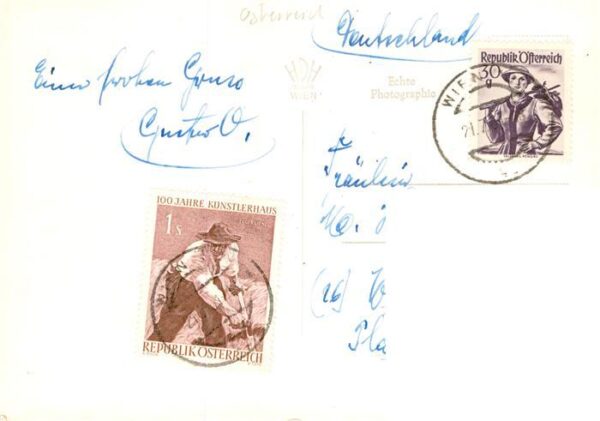 Österreich
Deutschland
Einen frohen Gruss
Gustav O.
WIEN
Echte
Photographie
Republik Österreich
30
g
WIEN
21.
Fräulein
M.
(16)
Pla
100 JAHRE KÜNSTLERHAUS
1 S
REPUBLIK ÖSTERREICH